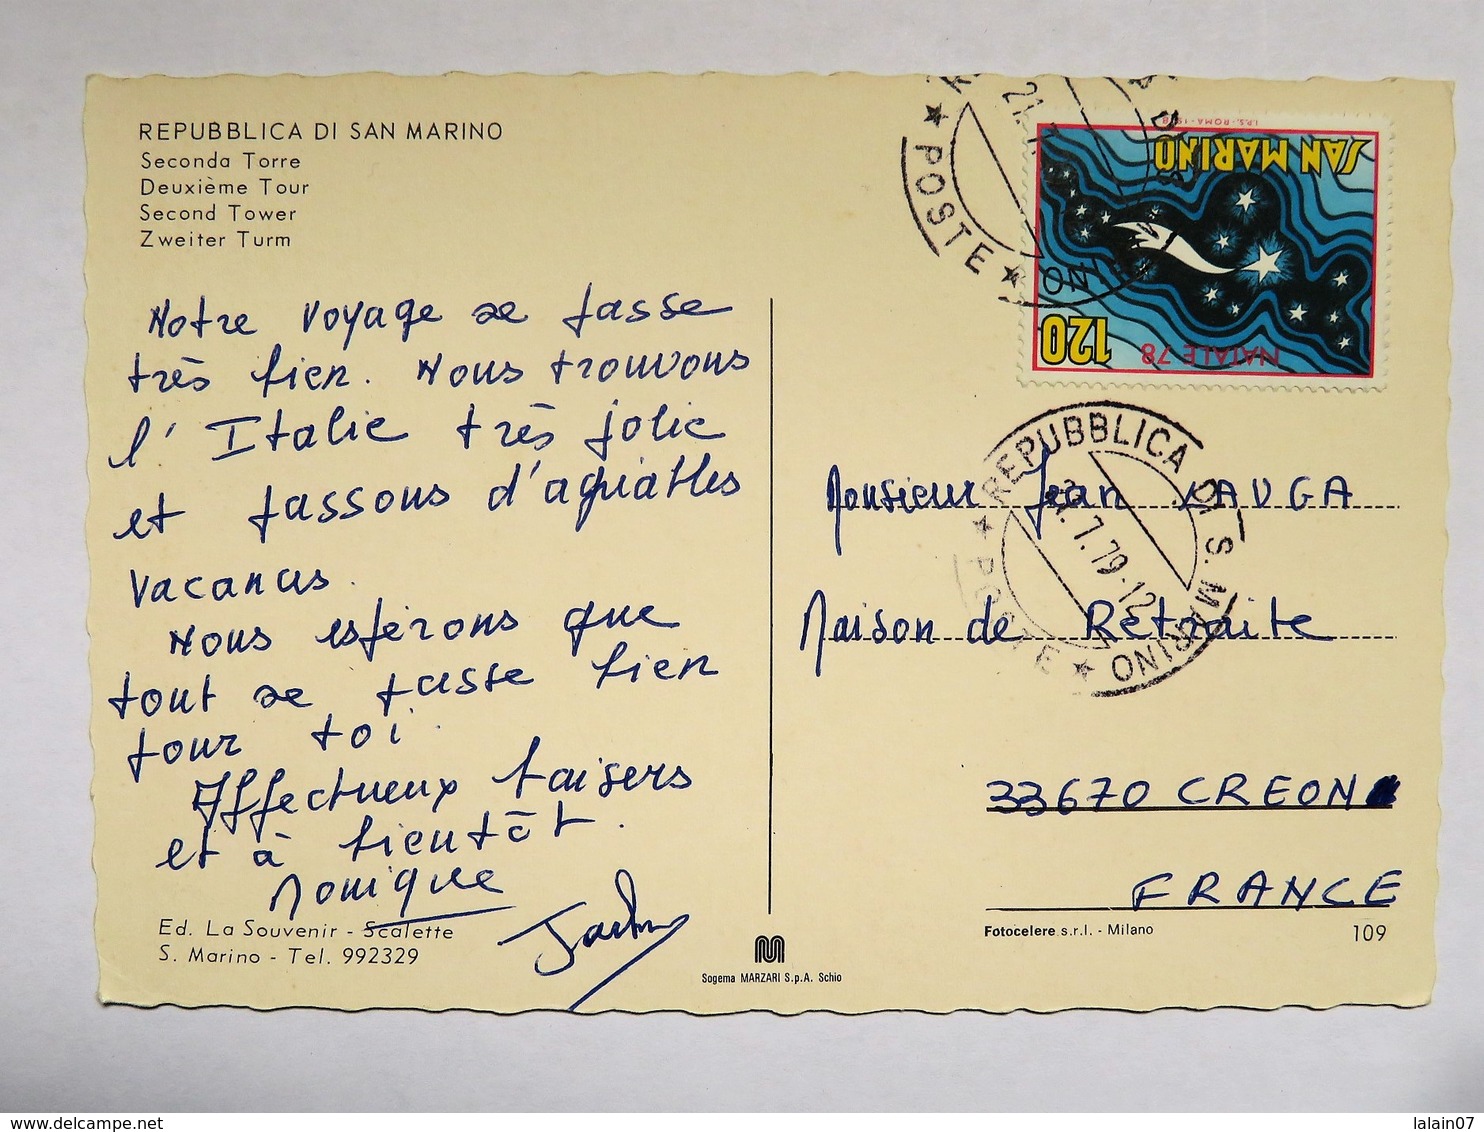 REPUBBLICA DI SAN MARINO
Seconda Torre
Deuxième Tour
Second Tower
Zweiter Turm
Notre voyage se passe
très bien. Nous trouvons
l'Italie très jolie
et passons d'agréables
vacances.
Nous espérons que
tout se passe bien
pour toi.
Affectueux baisers
et à bientôt.
Monique
Ed. La Souvenir - Scalette
S. Marino - Tel. 992329
Sogema MARZARI S.p.A. Schio
POSTE
I.P.S.-ROMA-1978
SAN MARINO
120
NATALE 78
REPUBBLICA DI S. MARINO
POSTE
7.79-12
Monsieur Jean LAUGA
Maison de Retraite
33670 CREON
FRANCE
Fotocelere s.r.l. - Milano
109
lalain07